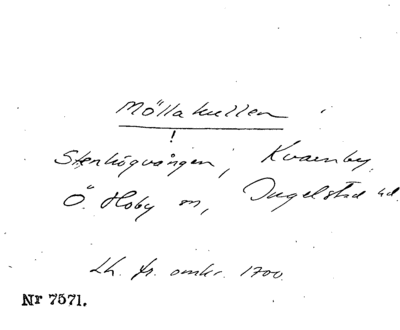 Möllakullen
!
Stenhögvången, Kvarnby,
Ö. Hoby sn, Ingelstad hd.
Lh. fr. omkr. 1700.
Nr 7571.